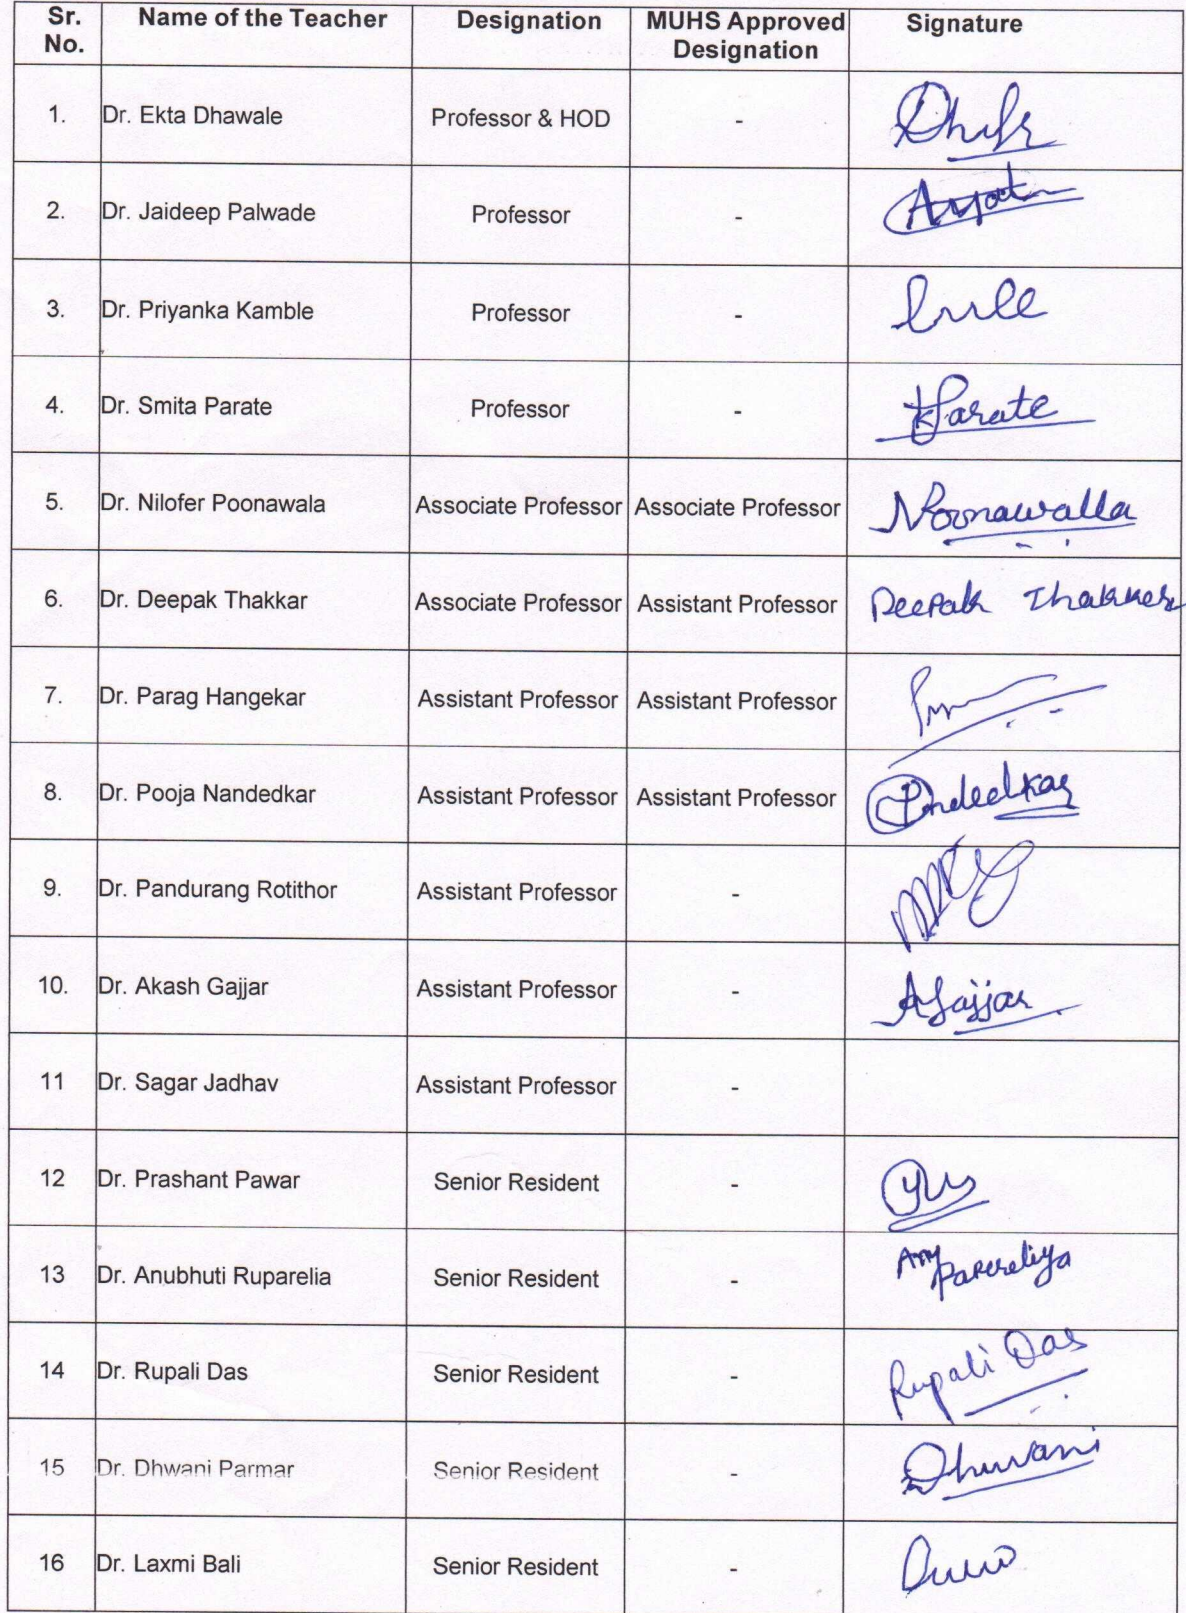 Sr. No. Name of the Teacher Designation MUHS Approved Designation Signature
1. Dr. Ekta Dhawale Professor & HOD -
2. Dr. Jaideep Palwade Professor -
3. Dr. Priyanka Kamble Professor -
4. Dr. Smita Parate Professor - Parate
5. Dr. Nilofer Poonawala Associate Professor Associate Professor NPoonawalla
6. Dr. Deepak Thakkar Associate Professor Assistant Professor Deepak Thakker
7. Dr. Parag Hangekar Assistant Professor Assistant Professor
8. Dr. Pooja Nandedkar Assistant Professor Assistant Professor
9. Dr. Pandurang Rotithor Assistant Professor -
10. Dr. Akash Gajjar Assistant Professor - AGajjar
11 Dr. Sagar Jadhav Assistant Professor -
12 Dr. Prashant Pawar Senior Resident -
13 Dr. Anubhuti Ruparelia Senior Resident -
14 Dr. Rupali Das Senior Resident - Rupali Das
15 Dr. Dhwani Parmar Senior Resident - Dhwani
16 Dr. Laxmi Bali Senior Resident -